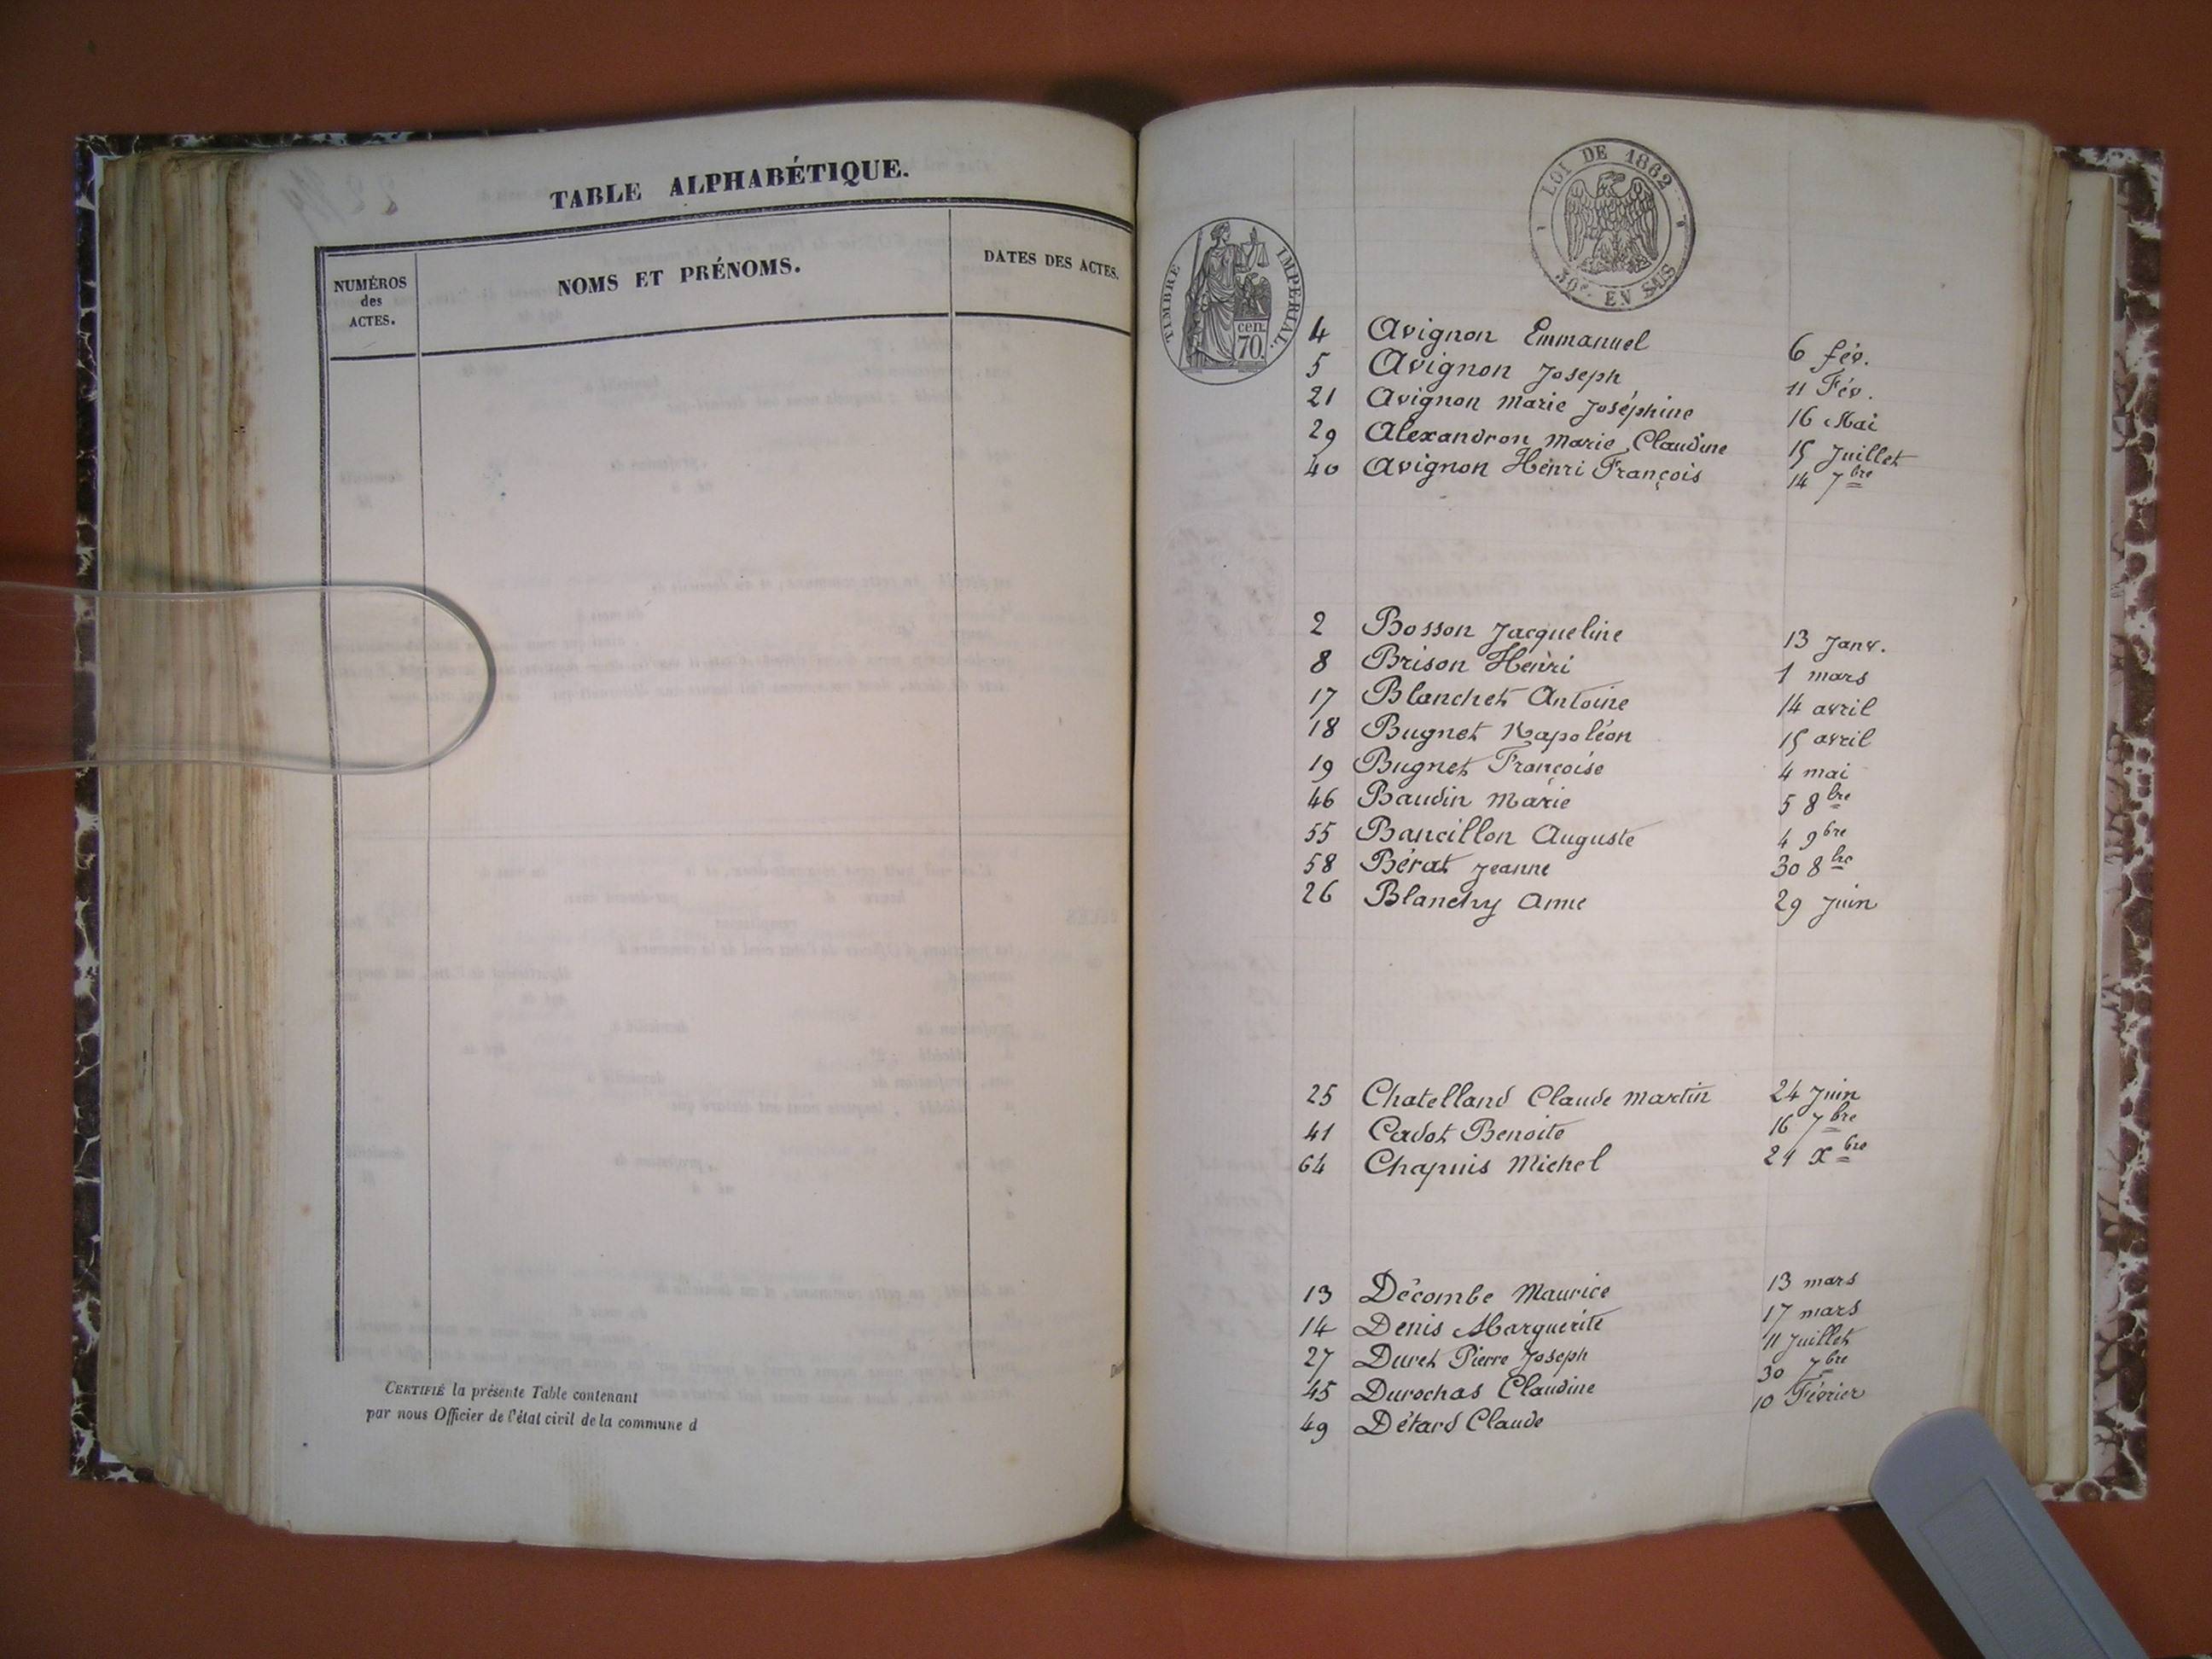 TABLE ALPHABÉTIQUE.
NUMÉROS
des
ACTES.
NOMS ET PRÉNOMS.
DATES DES ACTES.
CERTIFIÉ la présente Table contenant
par nous Officier de l'état civil de la commune d
TIMBRE IMPÉRIAL.
cen.
70.
LOI DE 1862
EN SUS
4 Avignon Emmanuel 6 fév.
5 Avignon Joseph 11 Fév.
21 Avignon Marie Joséphine 16 Mai
29 Alexandron Marie Claudine 15 Juillet
40 Avignon Henri François 14 7bre
2 Bosson Jacqueline 13 Janv.
8 Brison Henri 1 mars
17 Blanchet Antoine 14 avril
18 Bugnet Napoléon 15 avril
19 Bugnet Françoise 4 mai
46 Baudin Marie 5 8bre
55 Bancillon Auguste 4 9bre
58 Bérat Jeanne 30 8bre
26 Blanchy Anne 29 Juin
25 Chatelland Claude Martin 24 Juin
41 Cadot Benoite 16 7bre
64 Chapuis Michel 21 Xbre
13 Décombe Maurice 13 mars
14 Denis Marguerite 17 mars
27 Duret Pierre Joseph 11 Juillet
45 Durochas Claudine 30 7bre
49 Détard Claude 10 Février